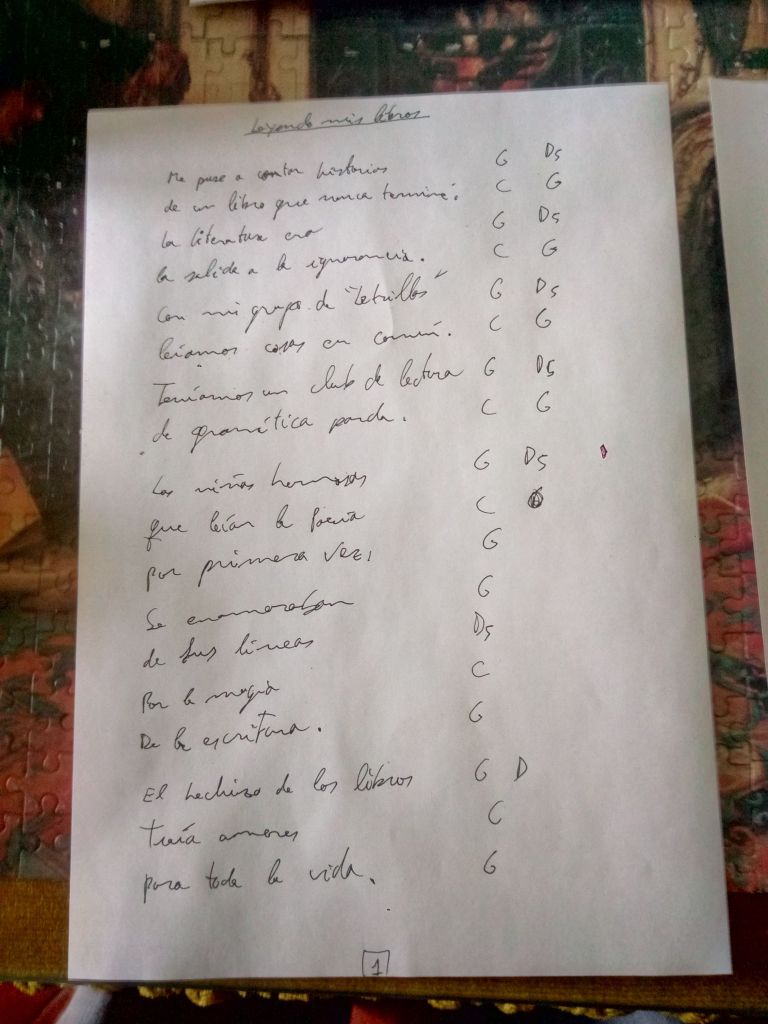 Leyendo mis libros
Me puse a contar historias G D5
de un libro que nunca terminé. C G
La literatura era G D5
la salida a la ignorancia. C G
Con mi grupo de "Letrillas" G D5
leíamos cosas en común. C G
Teníamos un club de lectura G D5
de gramática parda. C G
Las niñas hermosas G D5
que leían la Poesía C
por primera vez, G
Se enamoraban G
de sus líneas D5
Por la magia C
De la escritura. G
El hechizo de los libros G D
Traía amores C
para toda la vida. G
1